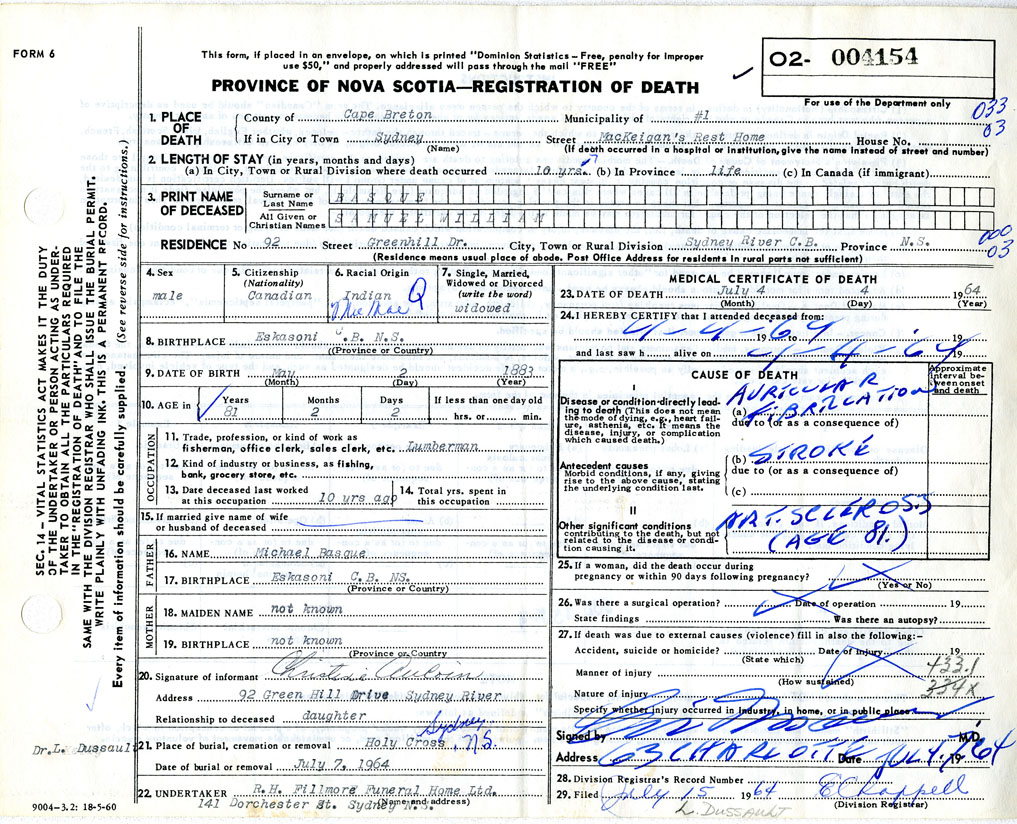 FORM 6
This form, if placed in an envelope, on which is printed "Dominion Statistics – Free, penalty for improper
use $50," and properly addressed will pass through the mail "FREE"
PROVINCE OF NOVA SCOTIA—REGISTRATION OF DEATH
O2- 004154
For use of the Department only
033
03
1. PLACE OF DEATH
County of Cape Breton Municipality of #1
If in City or Town Sydney Street MacKeigan's Rest Home House No.
(Name) (If death occurred in a hospital or institution, give the name instead of street and number)
2. LENGTH OF STAY (in years, months and days)
(a) In City, Town or Rural Division where death occurred 10 yrs. (b) In Province life (c) In Canada (if immigrant)
3. PRINT NAME OF DECEASED
Surname or Last Name BASQUE
All Given or Christian Names SAMUEL WILLIAM
000
03
RESIDENCE No 92 Street Greenhill Dr. City, Town or Rural Division Sydney River C.B. Province N.S.
(Residence means usual place of abode. Post Office Address for residents in rural parts not sufficient)
4. Sex
male
5. Citizenship
(Nationality)
Canadian
6. Racial Origin
Indian
7. Single, Married,
Widowed or Divorced
(write the word)
widowed
8. BIRTHPLACE Eskasoni C.B. N.S.
((Province or Country)
9. DATE OF BIRTH May 2 1883
(Month) (Day) (Year)
10. AGE in
Years
81
Months
2
Days
2
If less than one day old
hrs. or min.
OCCUPATION
11. Trade, profession, or kind of work as
fisherman, office clerk, sales clerk, etc. Lumberman
12. Kind of industry or business, as fishing,
bank, grocery store, etc.
13. Date deceased last worked
at this occupation 10 yrs ago
14. Total yrs. spent in
this occupation
15. If married give name of wife
or husband of deceased
FATHER
16. NAME Michael Basque
17. BIRTHPLACE Eskasoni C.B. NS.
(Province or Country)
MOTHER
18. MAIDEN NAME not known
19. BIRTHPLACE not known
(Province or Country
20. Signature of informant Christine
Address 92 Green Hill Drive Sydney River
Relationship to deceased daughter
21. Place of burial, cremation or removal Holy Cross, Sydney N.S.
Date of burial or removal July 7, 1964
22. UNDERTAKER R.H. Fillmore Funeral Home Ltd.
141 Dorchester St. Sydney N.S.
(Name and address)
MEDICAL CERTIFICATE OF DEATH
23. DATE OF DEATH July 4 4 1964
(Month) (Day) (Year)
24. I HEREBY CERTIFY that I attended deceased from:
4-4-64 19 to 19
and last saw h alive on 4-4-64 19
CAUSE OF DEATH
Approximate
interval be-
tween onset
and death
I
Disease or condition directly lead-
ing to death (This does not mean
the mode of dying, e.g., heart fail-
ure, asthenia, etc. It means the
disease, injury, or complication
which caused death.)
(a) AURICULAR
FIBRILLATION
due to (or as a consequence of)
(b) STROKE
due to (or as a consequence of)
(c)
Antecedent causes
Morbid conditions, if any, giving
rise to the above cause, stating
the underlying condition last.
II
Other significant conditions
contributing to the death, but not
related to the disease or condi-
tion causing it.
ART. SCLEROSIS
(AGE 81.)
25. If a woman, did the death occur during
pregnancy or within 90 days following pregnancy?
(Yes or No)
26. Was there a surgical operation? Date of operation 19
State findings Was there an autopsy?
27. If death was due to external causes (violence) fill in also the following:–
Accident, suicide or homicide? Date of injury 19
(State which)
Manner of injury
(How sustained)
433.1
334X
Nature of injury
Specify whether injury occurred in industry, in home, or in public place
Signed by M.D.
Address 63 CHARLOTTE Date JUL 4/64 19
28. Division Registrar's Record Number
29. Filed July 15 1964 E Chappell
(Division Registrar)
L. DUSSAULT
Dr. L. Dussault
9004-3.2: 18-5-60
SEC. 14 – VITAL STATISTICS ACT MAKES IT THE DUTY
OF THE UNDERTAKER OR PERSON ACTING AS UNDER-
TAKER TO OBTAIN ALL THE PARTICULARS REQUIRED
IN THE "REGISTRATION OF DEATH" AND TO FILE THE
SAME WITH THE DIVISION REGISTRAR WHO SHALL ISSUE THE BURIAL PERMIT.
WRITE PLAINLY WITH UNFADING INK. THIS IS A PERMANENT RECORD.
Every item of information should be carefully supplied. (See reverse side for instructions.)